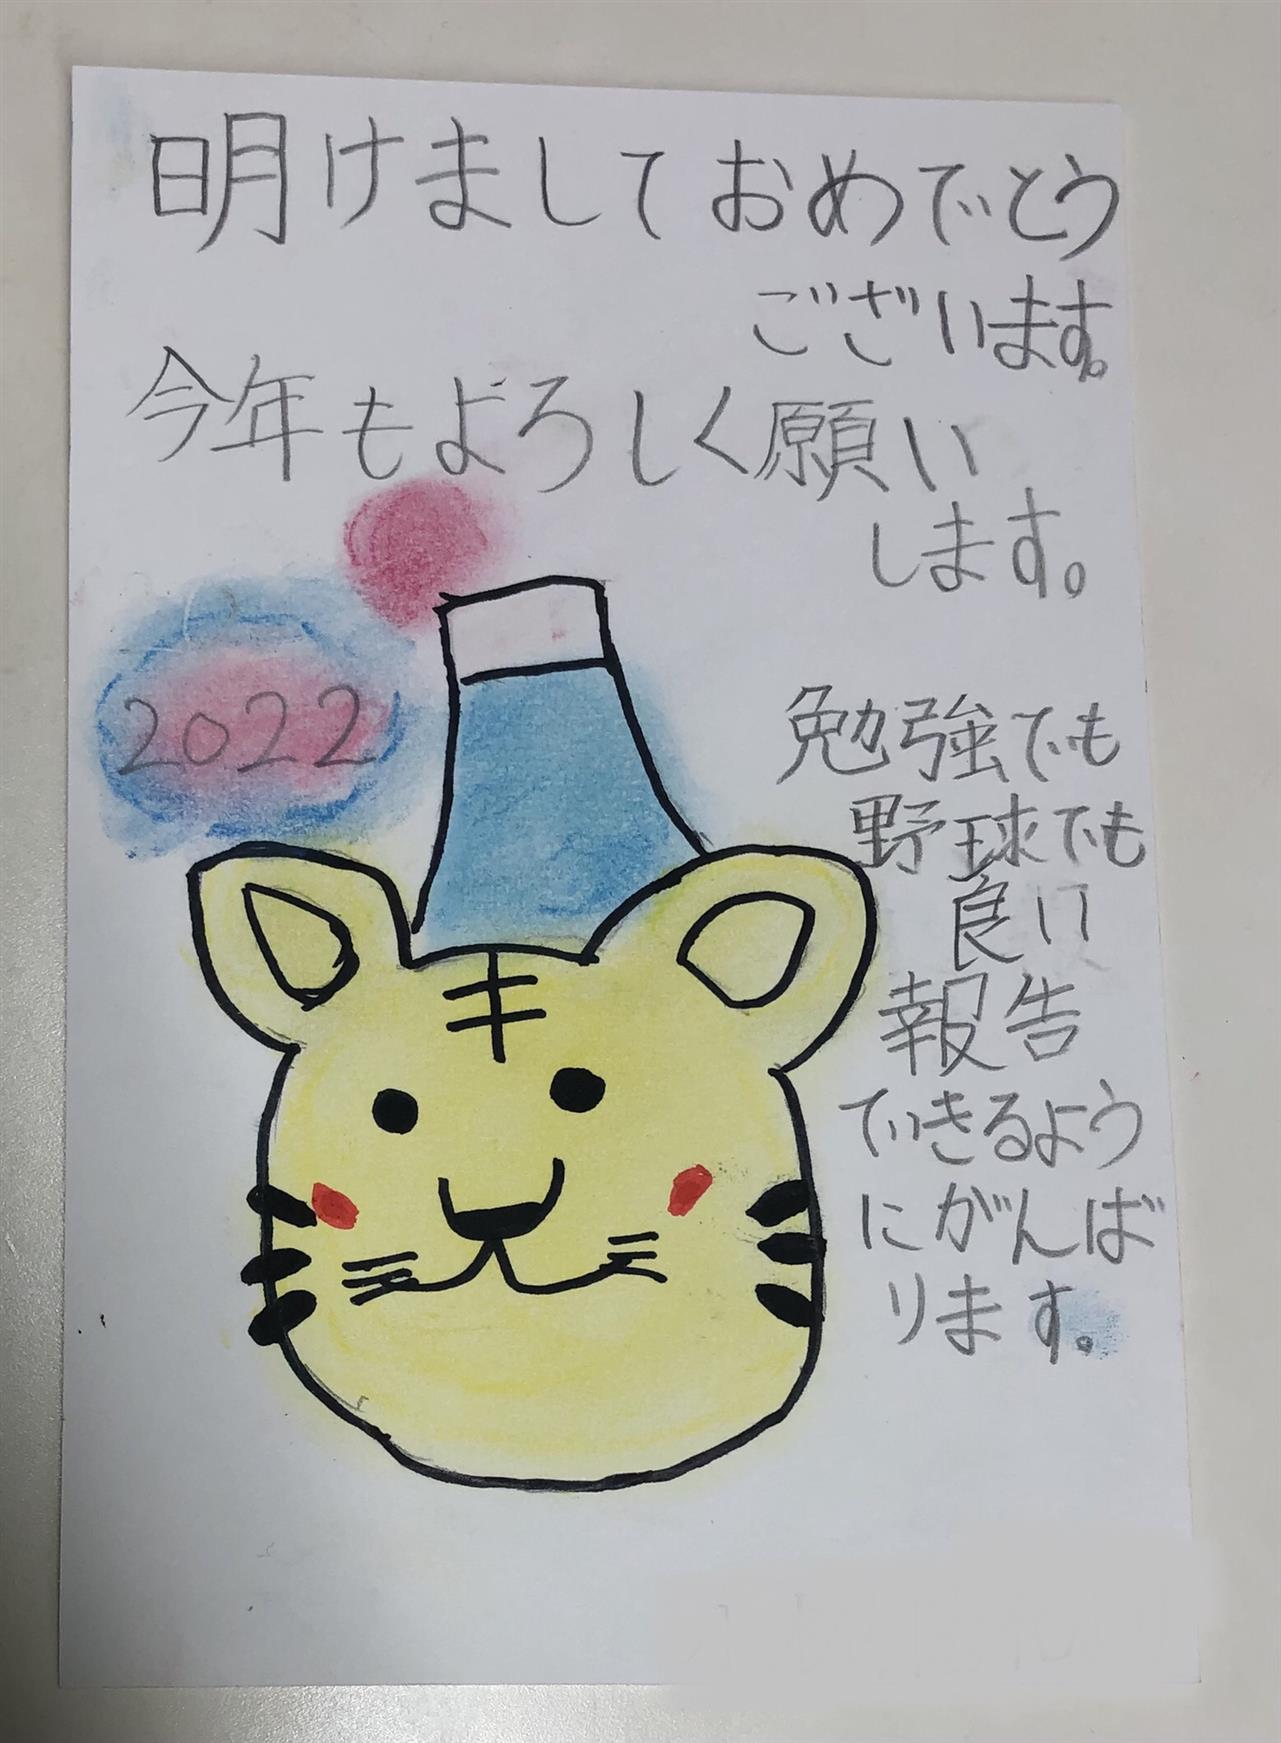 明けましておめでとう
ございます。
今年もよろしく願い
します。
2022
勉強でも
野球でも
良い
報告
できるよう
にがんば
ります。